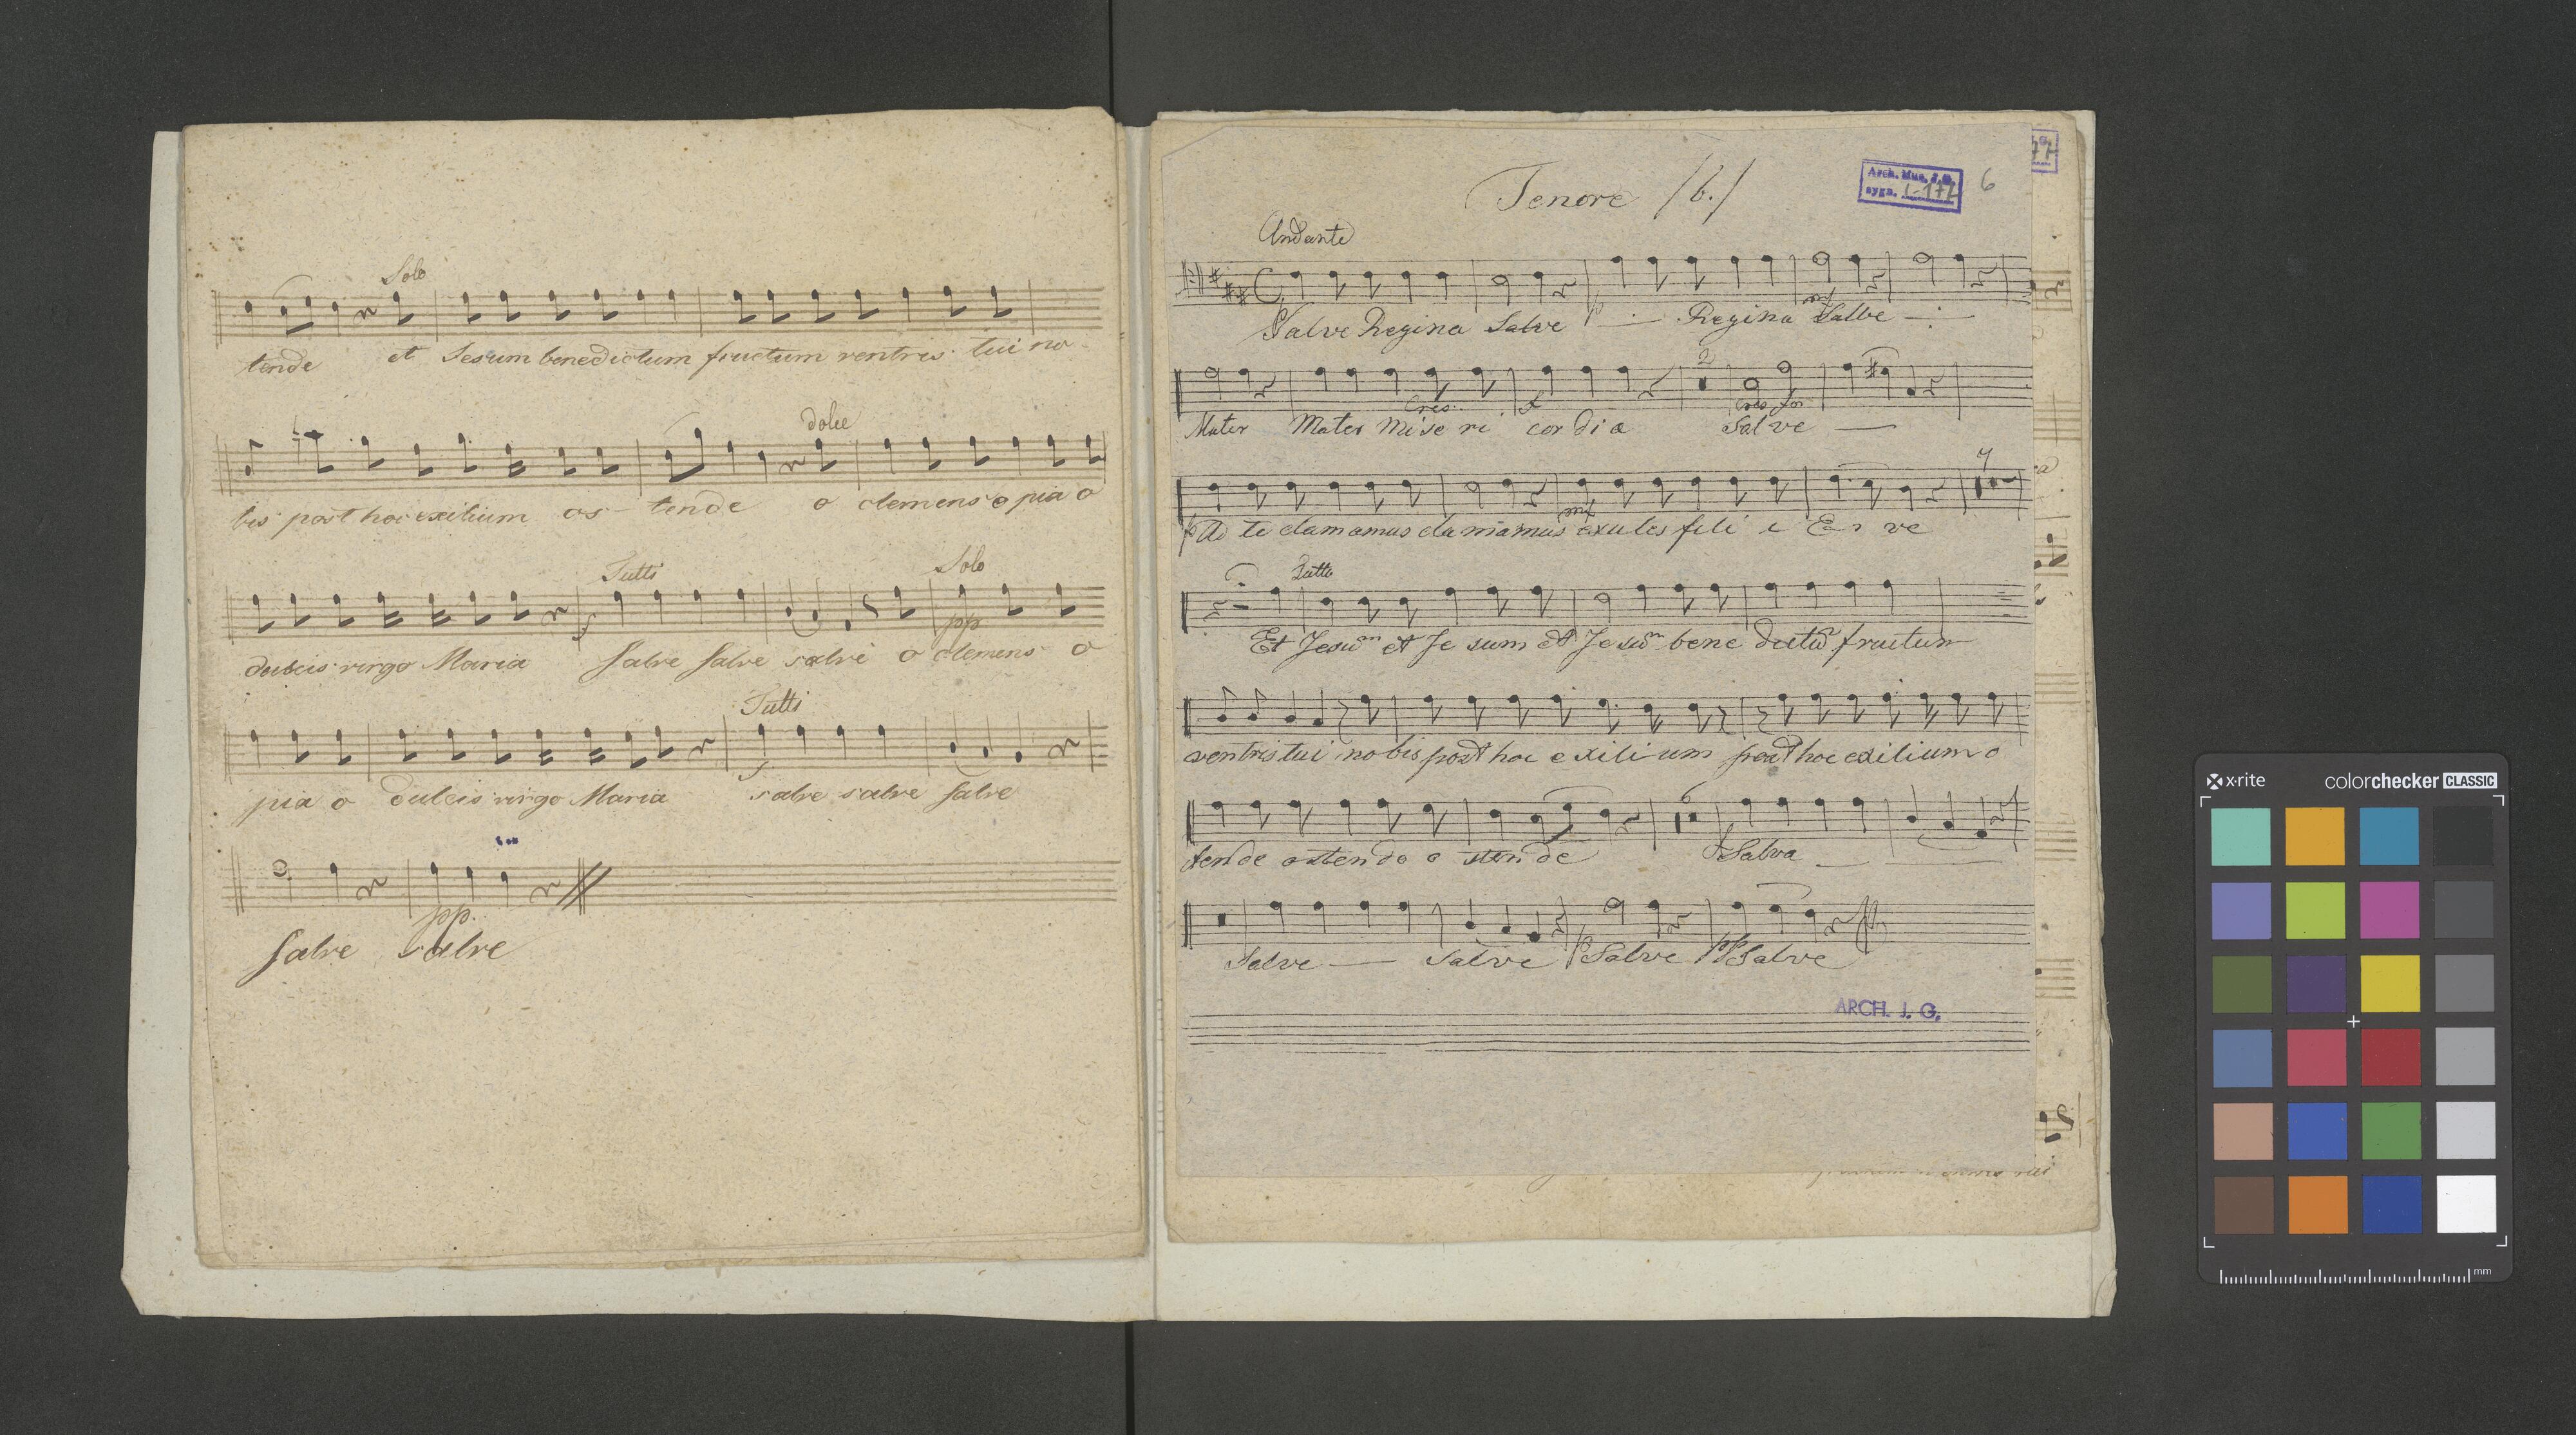 Solo
tende et Jesum benedictum fructum ventris tui no-
dolce
bis post hoc exilium os- tende o clemens o pia o
Tutti Solo
f pp
dulcis virgo Maria salve salve salve o clemens o
Tutti
f
pia o dulcis virgo Maria salve salve salve
pp.
salve salve
Tenore /b./
Arch. Mus. J.G.
sygn. 6
Andante
p mf
Salve Regina Salve Regina Salve
2
Cres. f cres for
Mater Mater Mise ri cor di æ Sal ve
7
p mf
Ad te clamamus clamamus exules fili i E ve
Tutto
Et Jesum et Je sum et Jesum bene dictu fructum
ventris tui nobis post hoc e xili um post hoc exilium o
6
f
tende ostende o sten de Salva
p pp
Salve Salve Salve Salve
ARCH. J. G.
x·rite colorchecker CLASSIC
mm